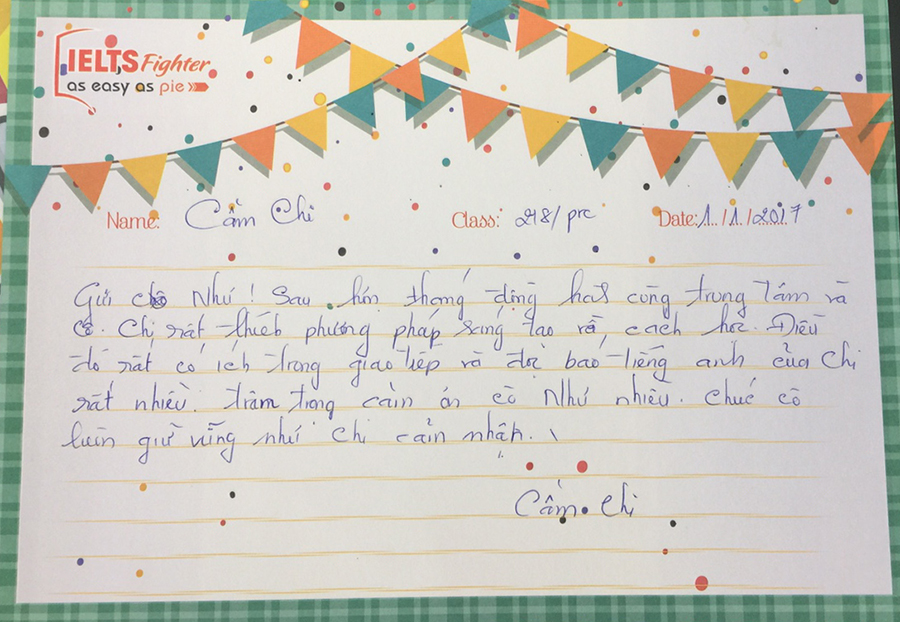 IELTS Fighter
as easy as pie
Name: Cẩm Chi
Class: 218/pre
Date: 1/1/2017
Gửi cô Như! Sau hơn tháng động hành cùng trung tâm và
cô. Chị rất thích phương pháp sáng tạo và cách học. Điều
đó rất có ích trong giao tiếp và đọc báo tiếng anh của Chi
rất nhiều. Trâm trọng cảm ơn cô Như nhiều. Chúc cô
luôn giữ vững như Chi cảm nhận.
Cẩm Chi